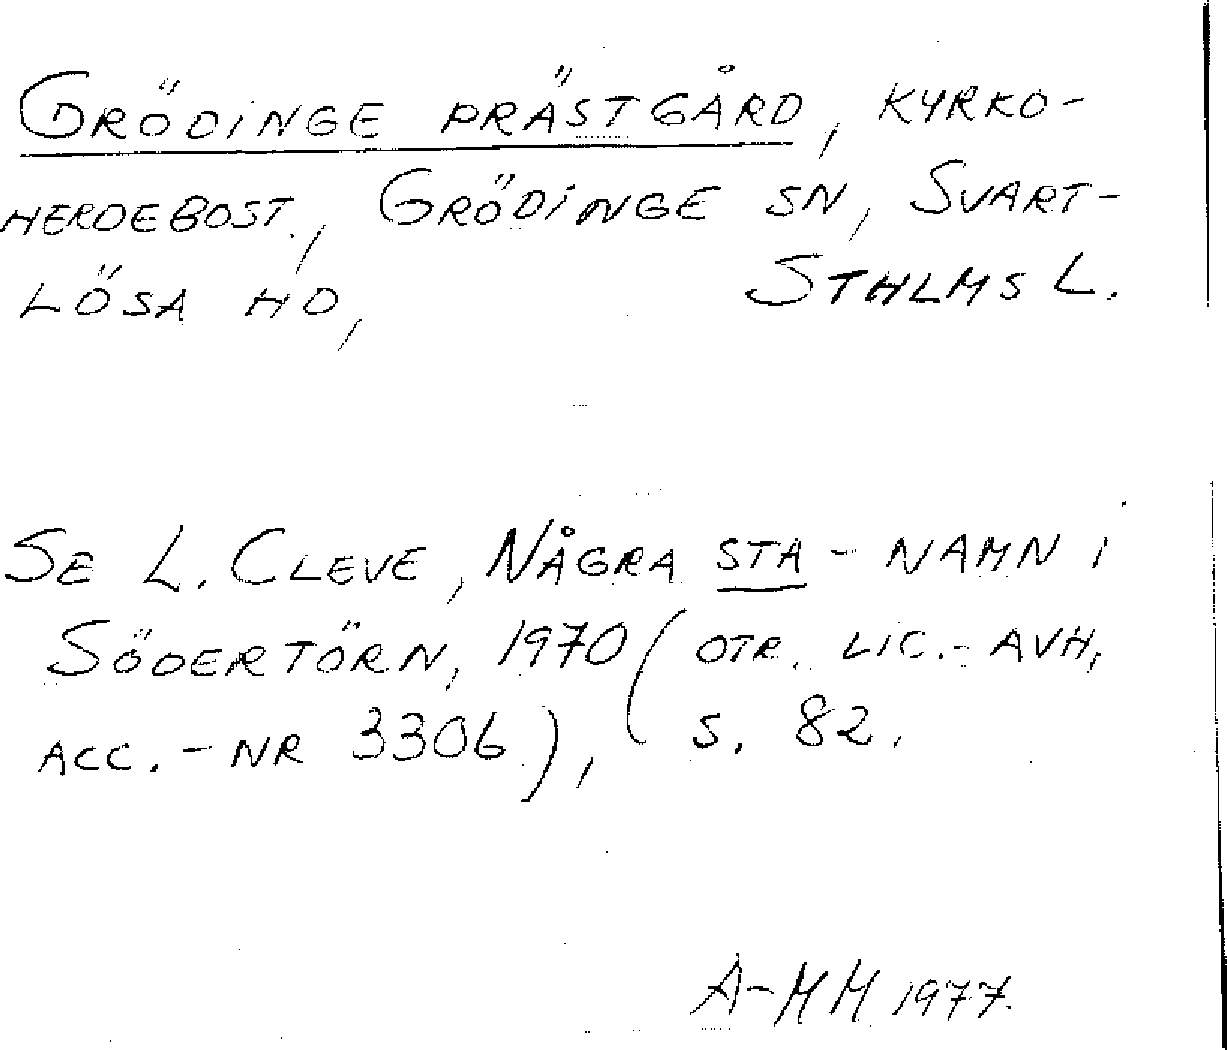 GRÖDINGE PRÄSTGÅRD, KYRKO-
HERDEBOST., GRÖDINGE SN, SVART-
LÖSA HD, STHLMS L.
SE L. CLEVE, NÅGRA STA-NAMN I
SÖDERTÖRN, 1970 (OTR. LIC.-AVH,
ACC.-NR 3306), S. 82.
A-MM 1977.